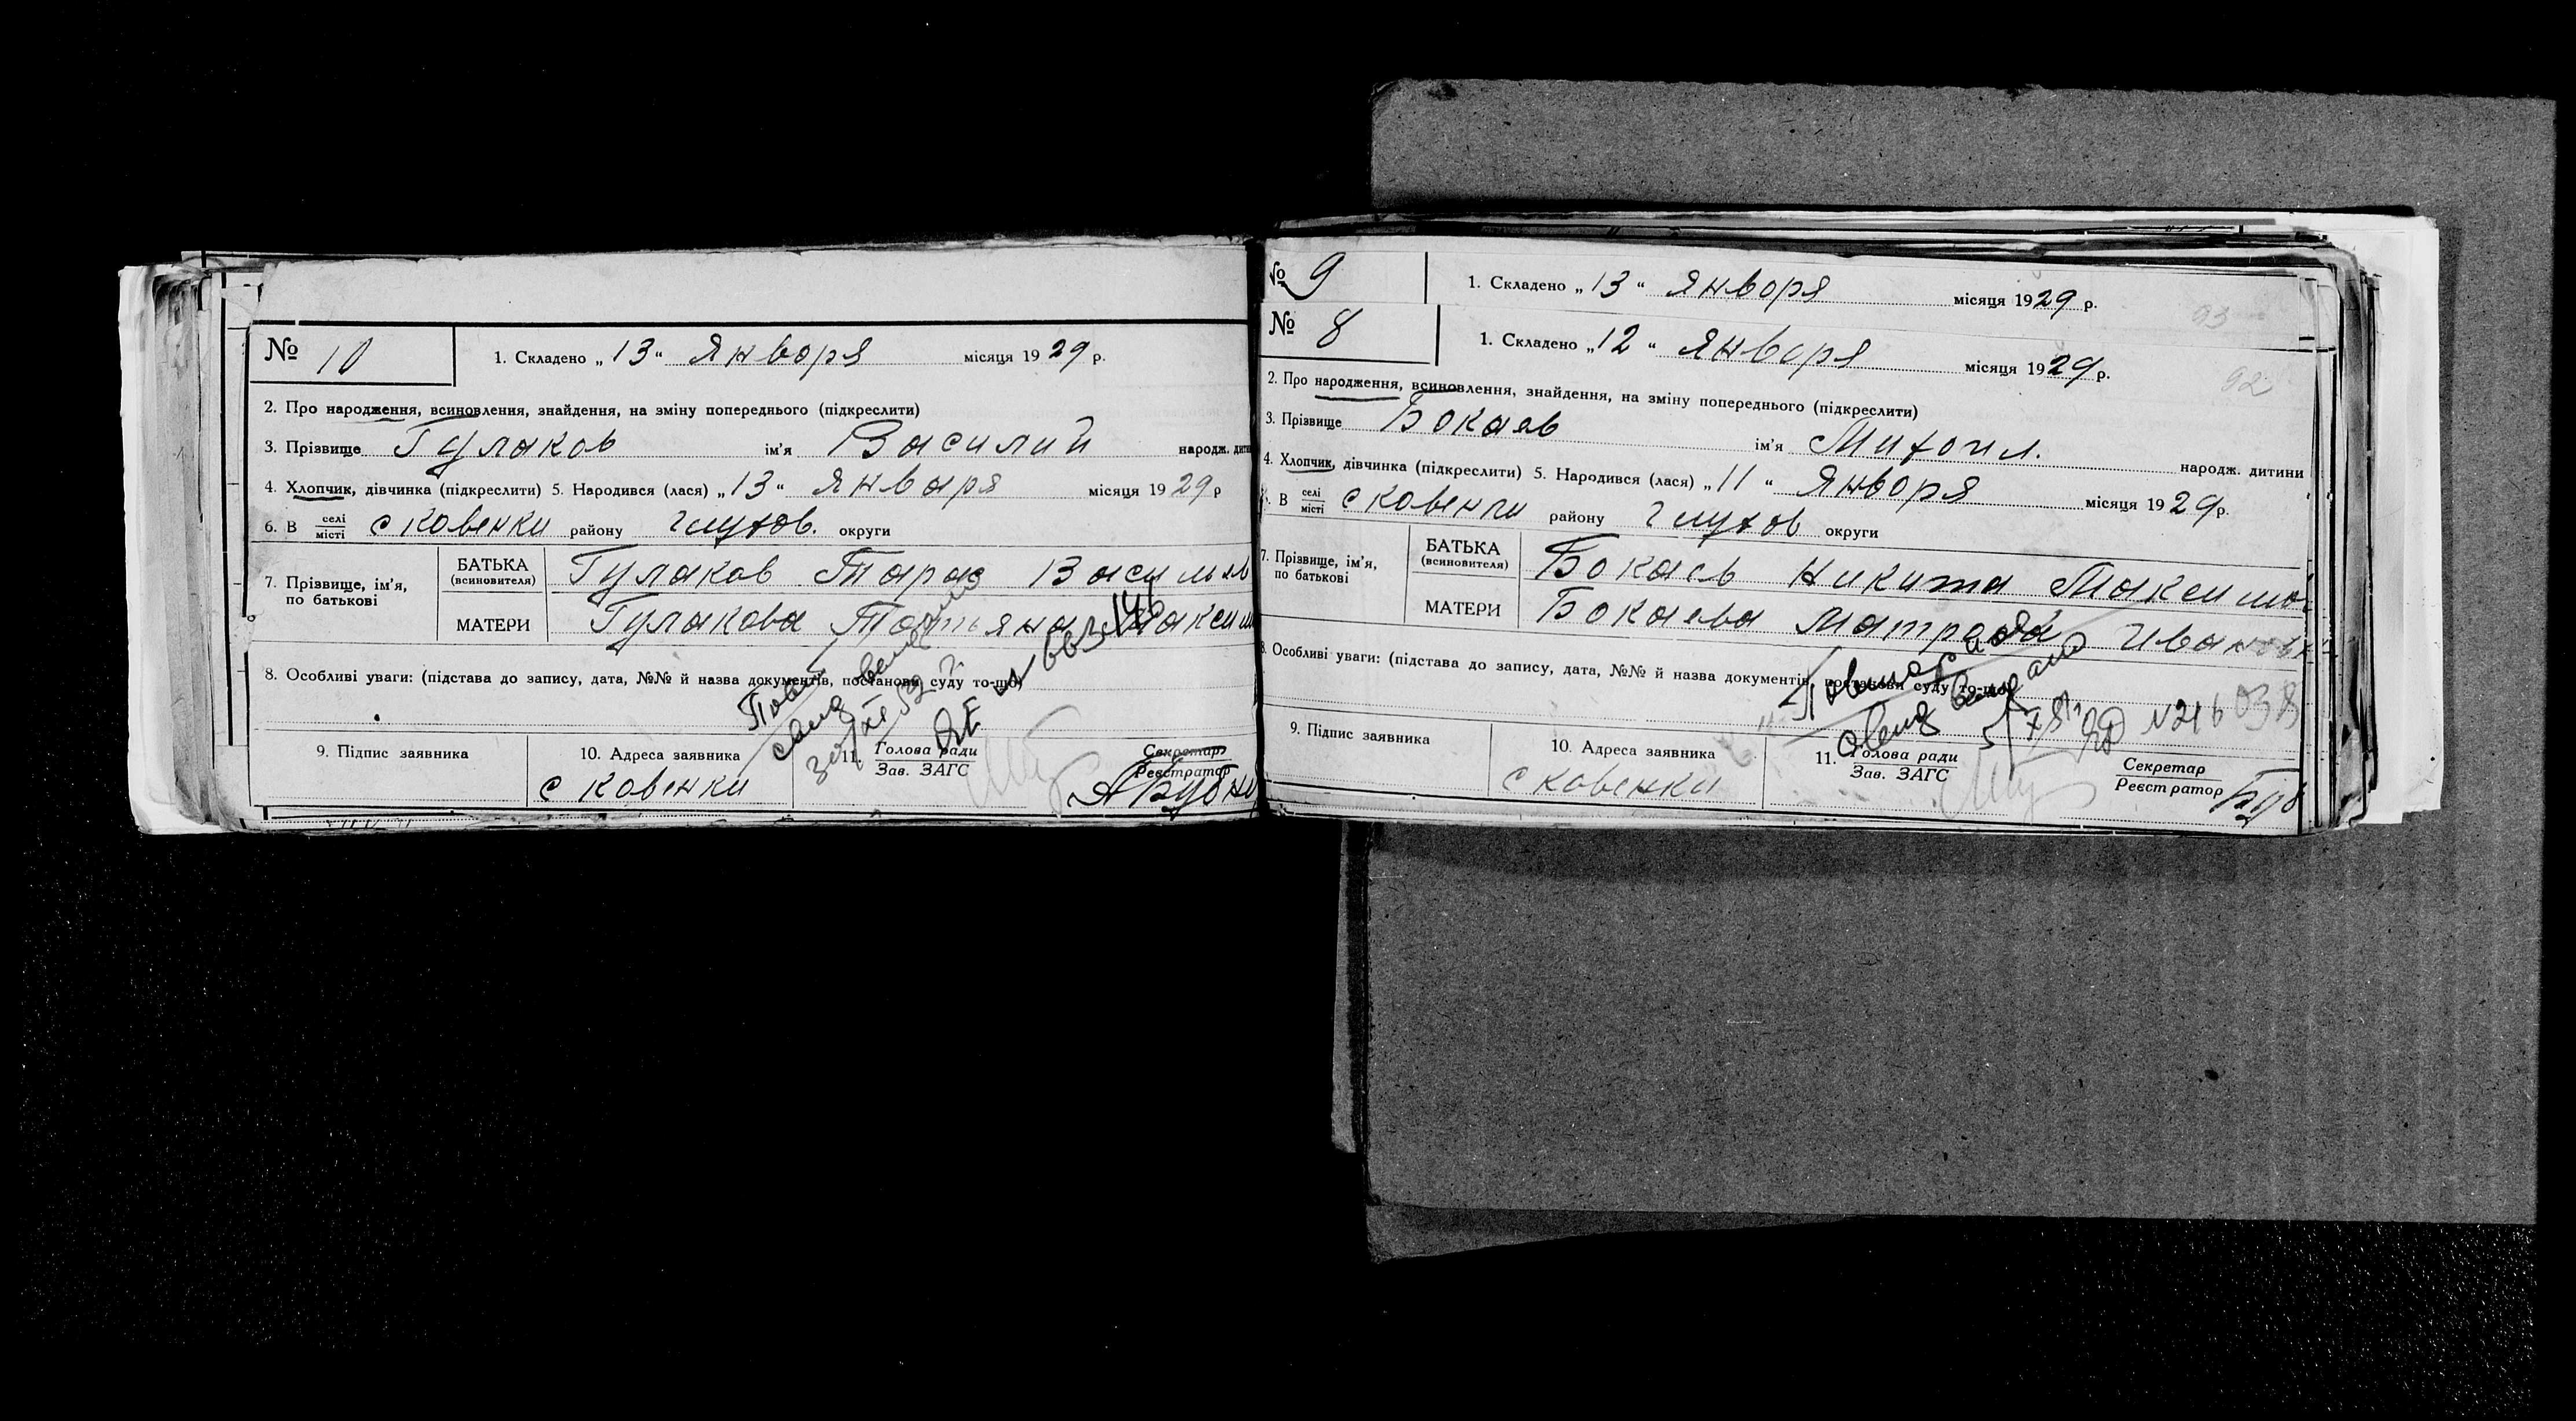 № 10
1. Складено „13“ Января місяця 1929 р.
2. Про народження, всиновлення, знайдення, на зміну попереднього (підкреслити)
3. Прізвище Гулаков ім'я Василий народж. дити
4. Хлопчик, дівчинка (підкреслити) 5. Народився (лася) „13“ Января місяця 1929 р
6. В селі місті с Ковенки району Глухов. округи
7. Прізвище, ім'я, по батькові
БАТЬКА (всиновителя) Гулаков Тарас Василь
МАТЕРИ Гулакова Татьяна Максим
8. Особливі уваги: (підстава до запису, дата, №№ й назва документів, постанови суду то-що)
9. Підпис заявника
10. Адреса заявника
с Ковенки
11. Голова ради
Зав. ЗАГС
Секретарь
Реєстратор
№ 9
1. Складено „13“ Января місяця 1929 р.
93
№ 8
1. Складено „12“ Января місяця 1929 р.
92
2. Про народження, всиновлення, знайдення, на зміну попереднього (підкреслити)
3. Прізвище Бокаев ім'я Михаил. народж. дитини
4. Хлопчик, дівчинка (підкреслити) 5. Народився (лася) „11“ Января місяця 1929 р.
. В селі місті с Ковенки району Глухов округи
7. Прізвище, ім'я, по батькові
БАТЬКА (всиновителя) Бокаев Никита Максимо
МАТЕРИ Бокаева Иванов
8. Особливі уваги: (підстава до запису, дата, №№ й назва документів, постанови суду то-що)
9. Підпис заявника
10. Адреса заявника
с Ковенки
11. Голова ради
Зав. ЗАГС
Секретар
Реєстратор